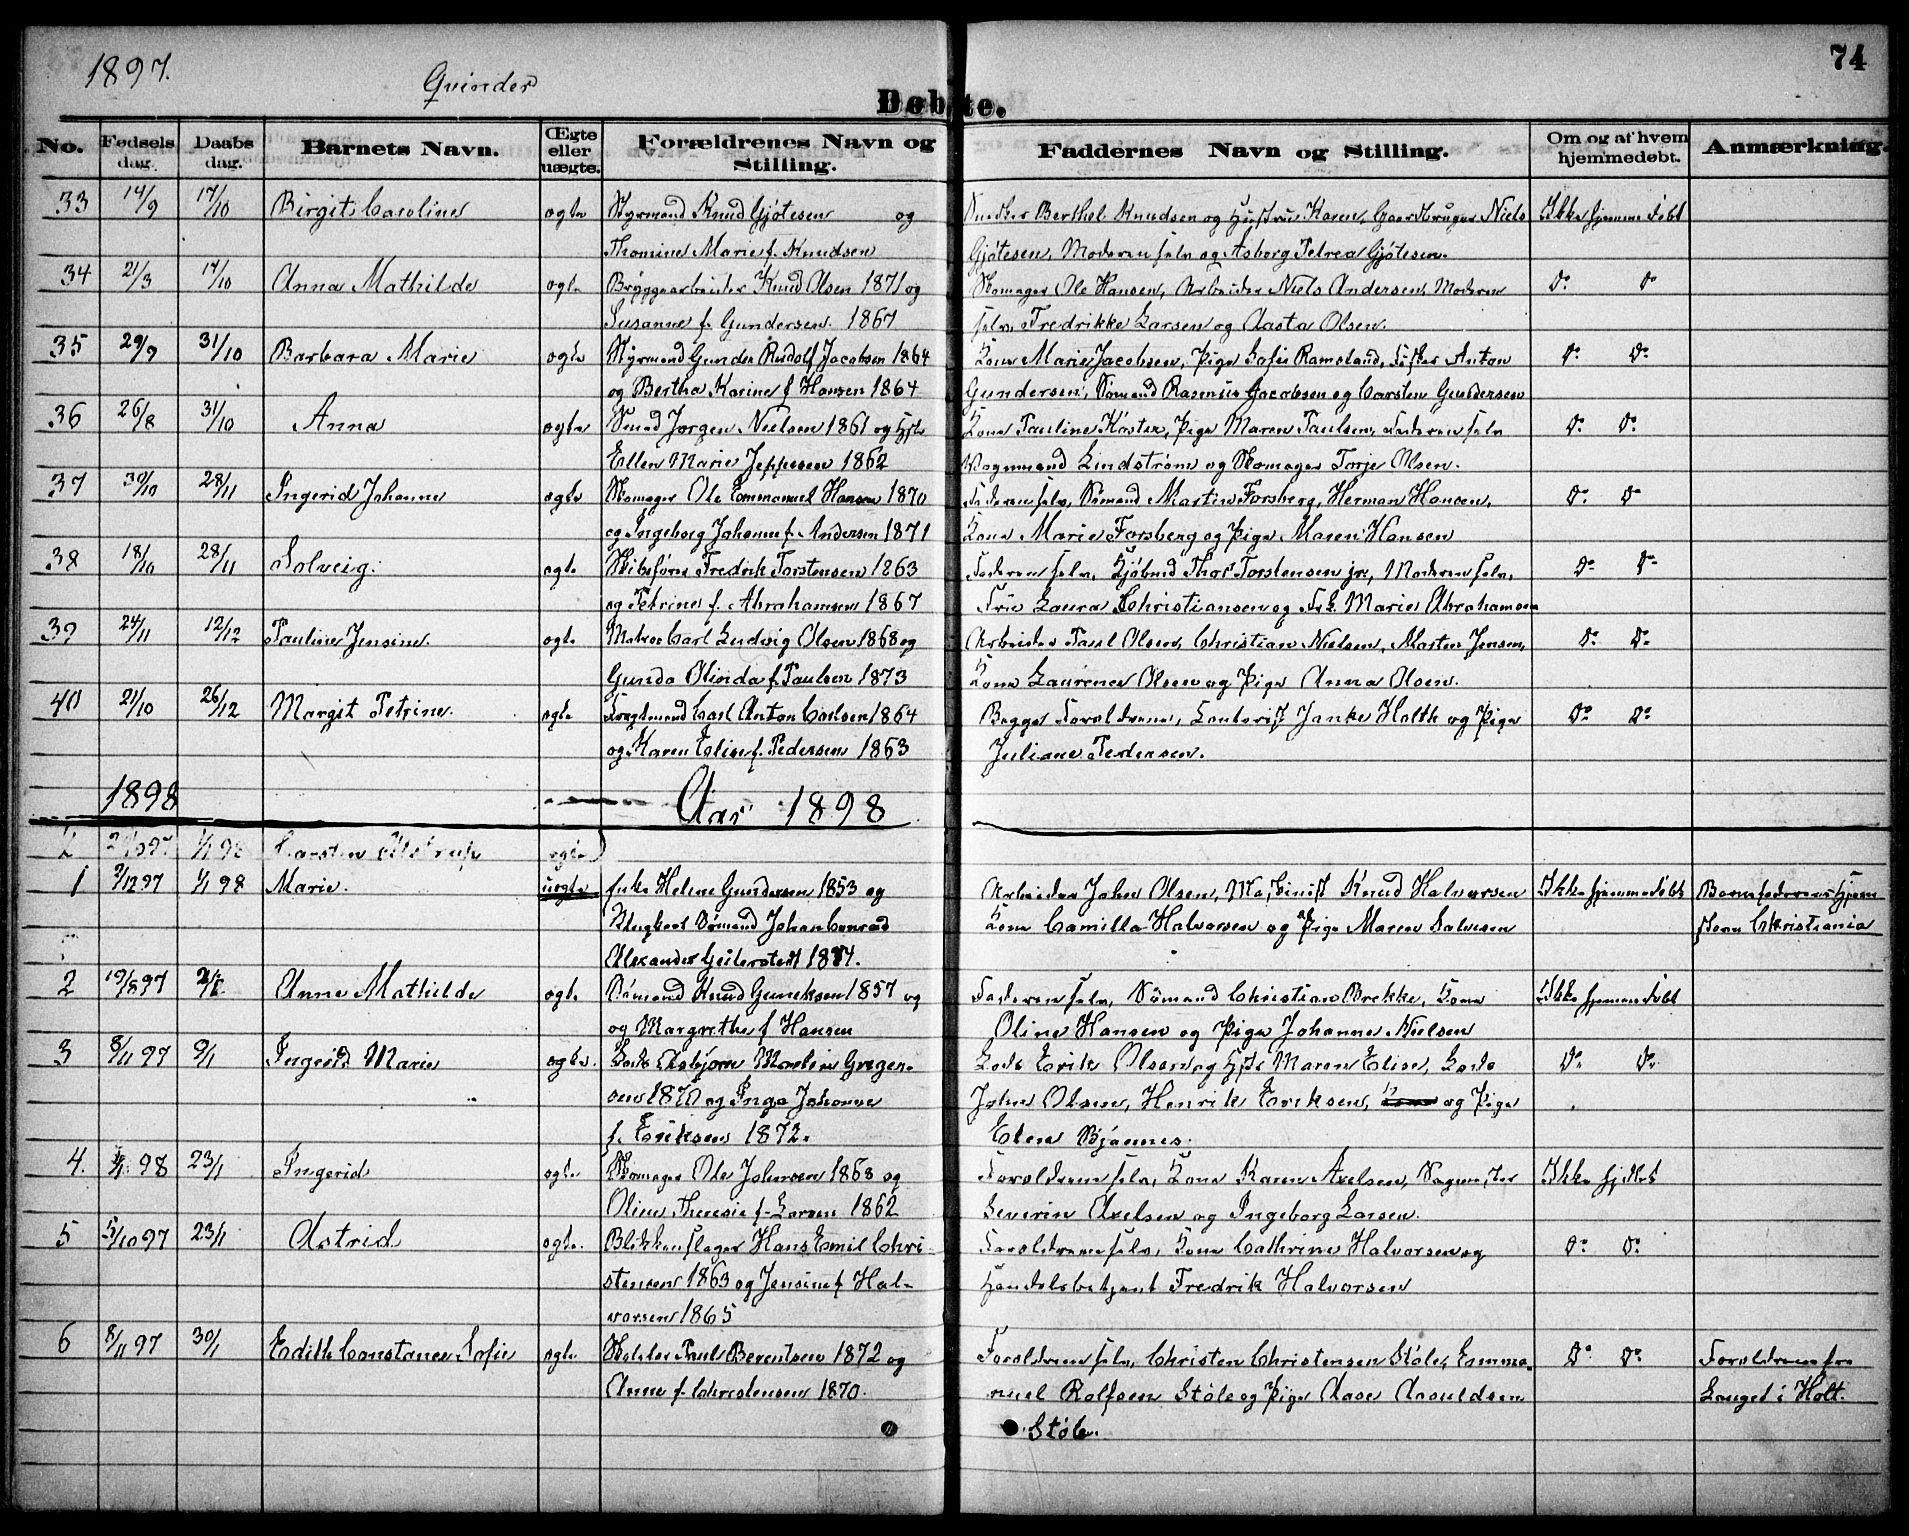 1897.
Qvinder
74
Døbte.
No. Fødsels dag. Daabs dag. Barnets Navn. Ægte eller uægte. Forældrenes Navn og Stilling. Faddernes Navn og Stilling. Om og af hvem hjemmedøbt. Anmærkning.
33 14/9 17/10 Birgit Caroline ægte Styrmand Knud Gjøtesen og Snedker Berthel Knudsen og Hustru Karen, Gaardbruger Niels Ikke hjemmedøbt
Thomine Marie f. Knudsen Gjøtesen, Moderen selv og Asborg Petrea Gjøtesen.
34 21/3 17/10 Anna Mathilde ægte Bryggearbeider Knud Olsen 1871 og Skomager Ole Hansen, Arbeider Niels Andersen, Moderen Do Do
Susanne f. Gundersen 1867 selv, Fredrikke Larsen og Aasta Olsen.
35 29/9 31/10 Barbara Marie ægte Styrmand Gunder Rudolf Jacobsen 1864 Kone Marie Jacobsen, Pige Sofie Ramsland, Fisker Anton Do Do
og Bertha Karine f Hansen 1864 Gundersen, Sømand Rasmus Jacobsen og Carsten Gundersen
36 26/8 31/10 Anna ægte Jørgen Nielsen 1861 og Kone Pauline Köster, Pige Maren Paulsen, Faderen selv Do Do
Ellen Marie Jeppesen 1862 Vognmand Lindstrøm og Skomager Torje Olsen.
37 30/10 28/11 Ingerid Johanne ægte Skomager Ole Emmanuel Hansen 1870 Faderen selv, Sømand Martin Forsberg, Herman Hansen, Do Do
og Ingeborg Johanne f. Andersen 1871 Kone Marie Forsberg og Pige Maren Hansen
38 18/10 28/11 Solveig. ægte Skibsfører Fredrik Torstensen 1863 Faderen selv, Kjøbmd Thor Torstensen jr, Moderen selv, Do Do
og Petrine f. Abrahamsen 1867 Laura Christiansen og Marie Abrahamsen
39 24/11 12/12 Pauline Jensine. ægte Matros Carl Ludvig Olsen 1868 og Arbeider Paul Olsen, Christian Nielsen, Morten Jensen, Do Do
Gunda Olinda f. Paulsen 1873 Kone Laurence Olsen og Pige Anna Olsen.
40 21/10 26/12 Margit Petrine. ægte Fragtmand Carl Anton Carlsen 1864 Begge Forældrene, Janke Holth og Pige Do Do
og Karen Elise f. Pedersen 1863 Juliane Pedersen.
1898 Aar 1898
1 9/12 97 1/1 98 Marie. uægte Enke Helene Gundersen 1853 og Arbeider John Olsen, Maskinist Knud Halvorsen Ikke hjemmedøbt Barnefaderens Hjem
Ungkarl Sømand Johan Conrad Kone Camilla Halvorsen og Pige Maren Salvesen Christiania
Alexander 1874.
2 19/8 97 Anne Mathilde ægte Sømand Knud 1857 og Faderen selv, Sømand Christian Brekke, Kone Ikke hjemmedøbt
og Margrethe f Hansen Oline Hansen og Pige Johanne Nielsen
3 8/11 97 9/1 Ingerid Marie ægte. Lods Asbjørn Gregersen Lods Erik Olsen og Maren Elise, Lods Do Do
1870 og Inga Johanne John Olsen, Henrik Eriksen, og Pige
f. Eriksen 1872. Elen Bjønnes.
4. 98 23/1 Ingerid ægte Skomager Ole Johnsen 1868 og Forældrene selv, Kone Karen Axelsen, Ikke hjdbt
Oline Theresie f. Larsen 1862 Severin Axelsen og Ingeborg Larsen.
5 5/10 97 23/1 Astrid ægte. Blikkenslager Hans Emil Chri- Forældrene selv, Kone Cathrine Halvorsen og Do Do
stensen 1863 og Jensine f Hal- Handelsbetjent Fredrik Halvorsen
vorsen 1865
6 8/11 97 30/1 Edith Constance Sofie ægte Paul Berentsen 1872 og Forældrene selv, Christen Christensen Støle, Emma- Do Do Forældrene fra
Anne f. Christensen 1870. nuel Rolfsen Støle og Pige Aase Aanuldsen Langet i Holt.
Støle.